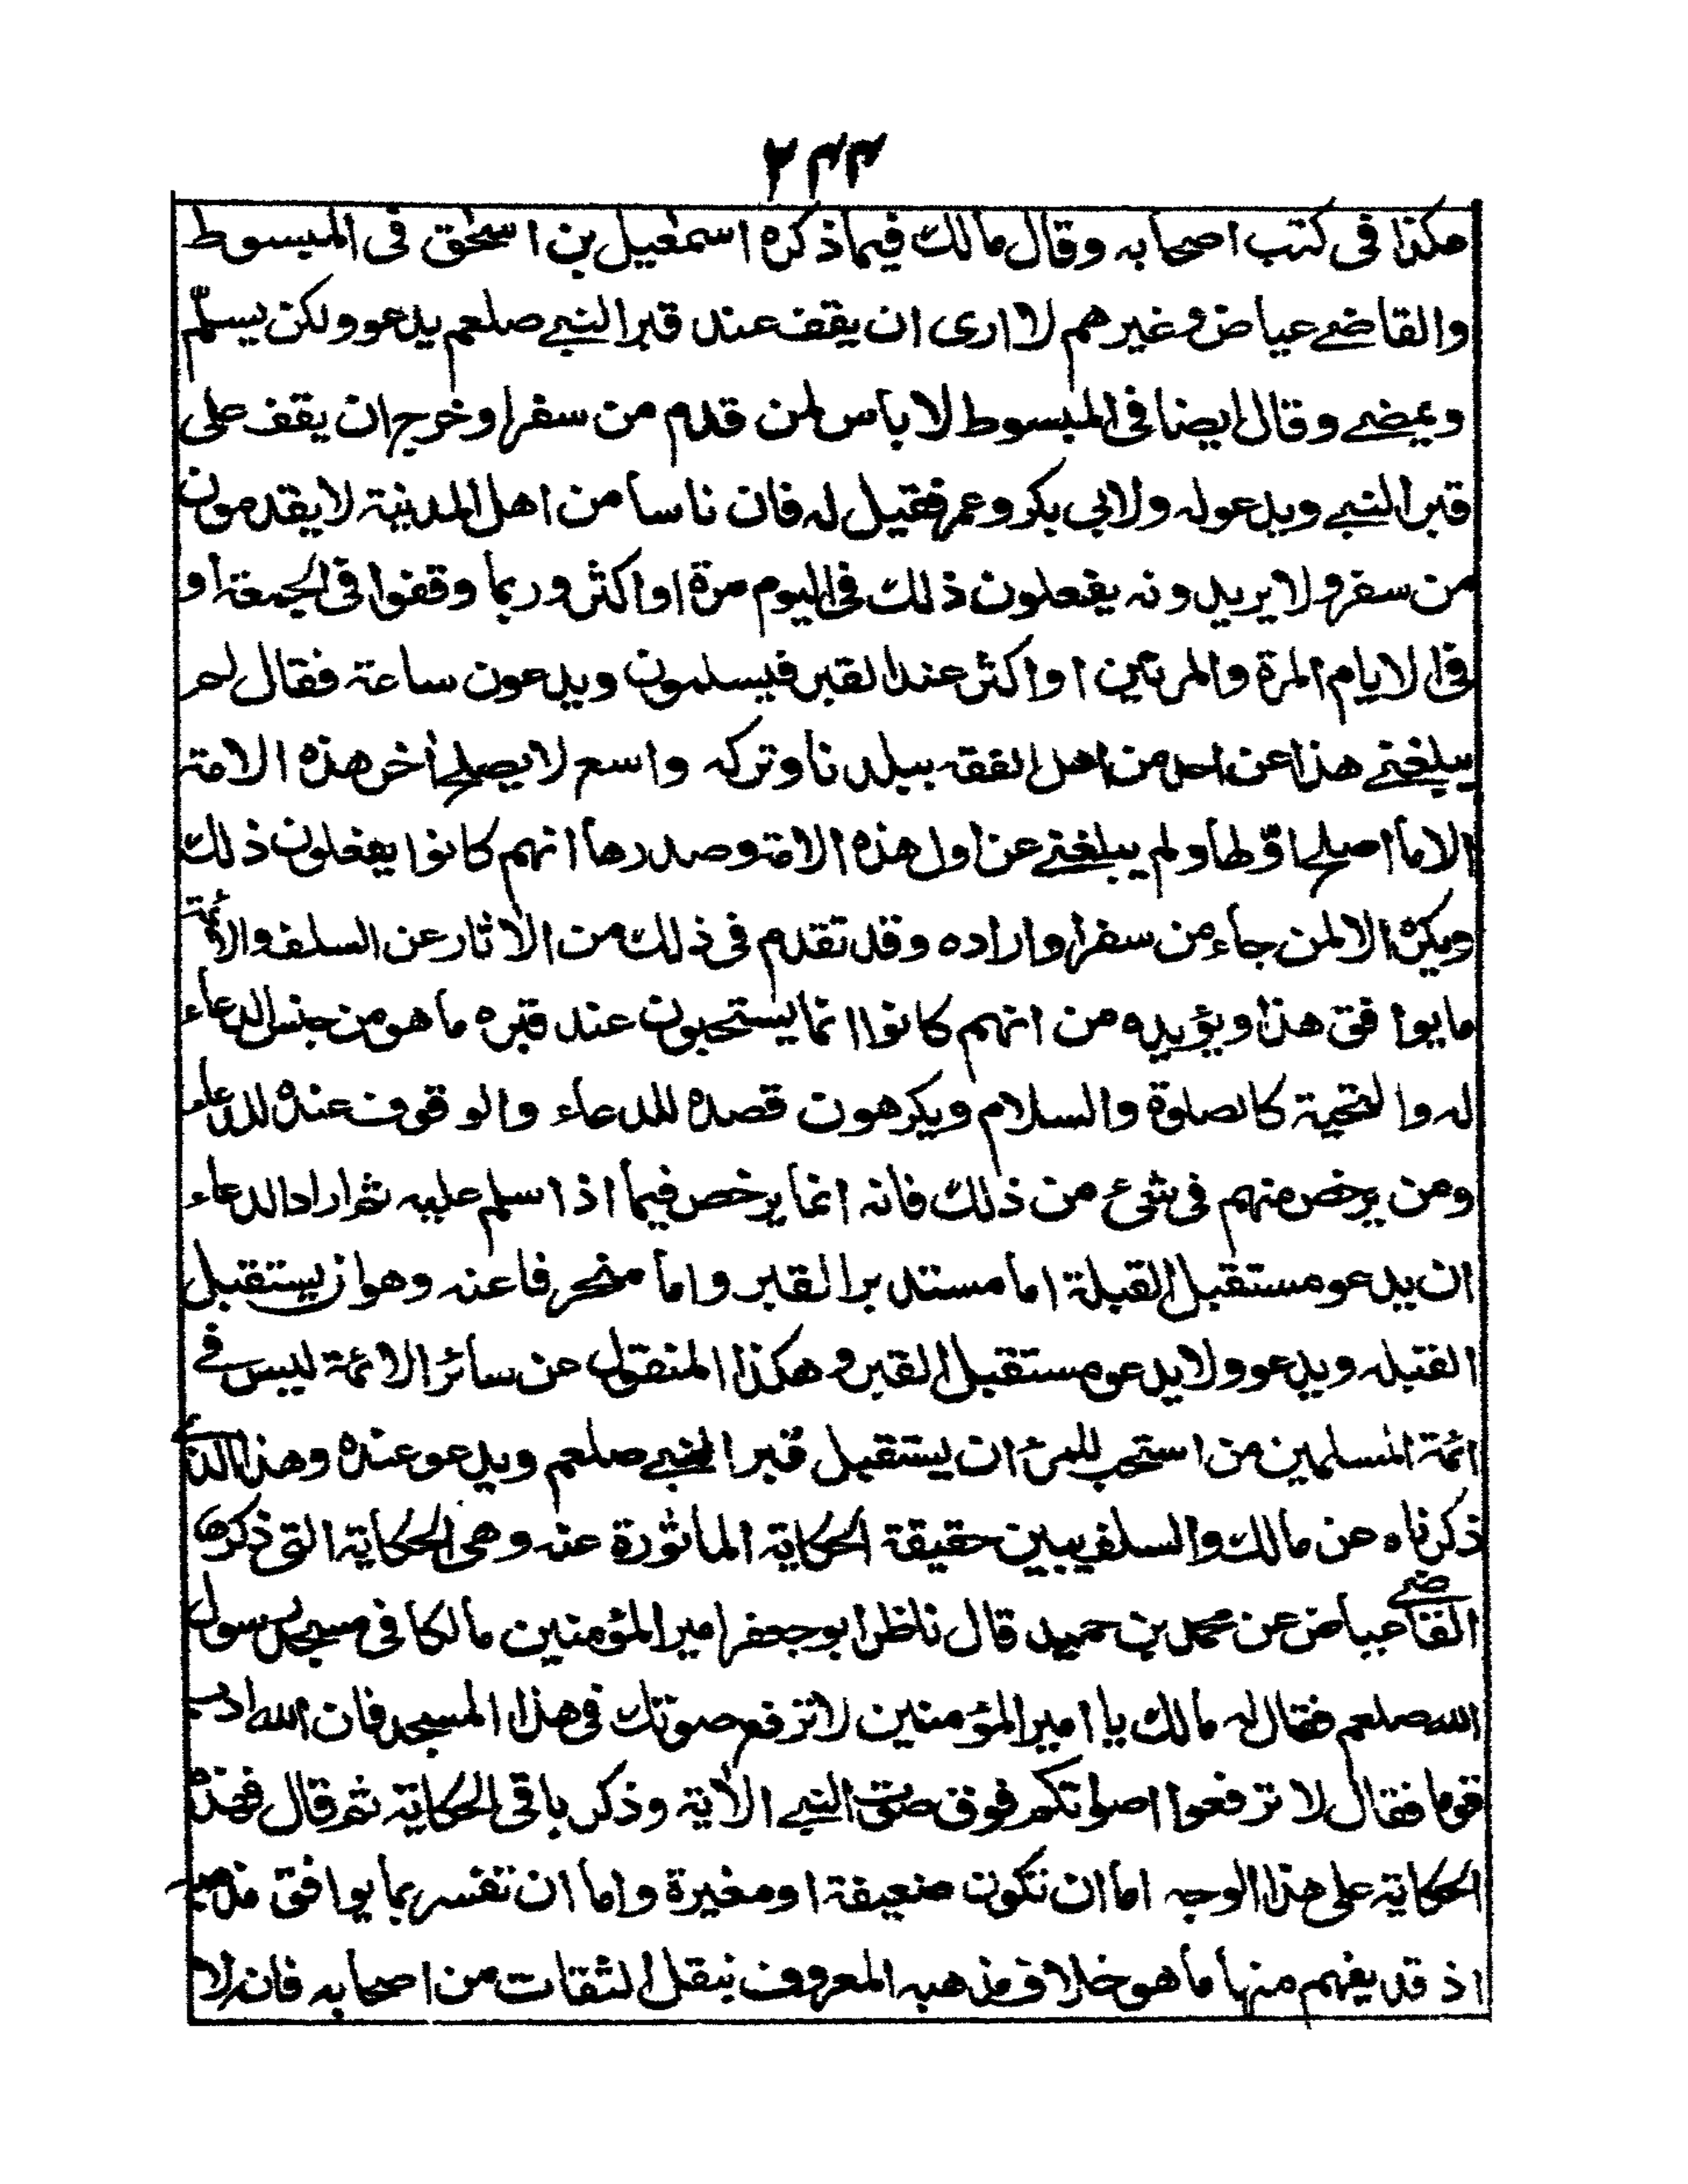 ۲۴۴
هكذا فى كتب اصحابه وقال مالك فيما ذكره اسمعيل بن اسحق فى المبسوط
والقاضے عياض وغيرهم لا ارى ان يقف عند قبر النبے صلعم يدعو ولكن يسلّم
ويمضے وقال ايضا فى المبسوط لا باس لمن قدم من سفر او خرج ان يقف على
قبر النبے ويدعو له ولابى بكر وعمر فقيل له فان ناسا من اهل المدينة لا يقدمون
من سفر ولا يريدونه يفعلون ذلك فى اليوم مرة او اكثر وربما وقفوا فى الجمعة او
فى الايام المرة والمرتين او اكثر عند القبر فيسلمون ويدعون ساعة فقال لم
يبلغنے هذا عن احد من اهل الفقه ببلدنا وتركه واسع لا يصلح أخر هذه الامة
الا ما اصلح اوّلها ولم يبلغنے عن اول هذه الامة وصدرها انهم كانوا يفعلون ذلك
ويكره الا لمن جاء من سفر او اراده وقد تقدم فى ذلك من الاثار عن السلف والائمة
ما يوافق هذا ويؤيده من انهم كانوا انما يستحبون عند قبره ما هو من جنس الدعاء
له والتحية كالصلوة والسلام ويكرهون قصده للدعاء والوقوف عنده للدعاء
ومن يرخص منهم فى شئ من ذلك فانه انما يرخص فيما اذا سلم عليه ثم اراد الدعاء
ان يدعو مستقبل القبلة اما مستدبر القبر واما منحرفا عنه وهو ان يستقبل
القبله ويدعو ولا يدعو مستقبل القبر وهكذا المنقول عن سائر الائمة ليس فے
ائمة المسلمين من استحب للمرئ ان يستقبل قبر النبے صلعم ويدعو عنده وهذا الذے
ذكرناه عن مالك والسلف يبين حقيقة الحكاية الماثورة عنه وهى الحكاية التى ذكرها
القاضے عياض عن محمد بن حميد قال ناظر ابو جعفر امير المؤمنين مالكا فى مسجد رسول
الله صلعم فقال له مالك يا امير المؤمنين لا ترفع صوتك فى هذا المسجد فان الله ادب
قوما فقال لا ترفعوا اصواتكم فوق صوت النبے الأية وذكر باقى الحكاية ثم قال فهذه
الحكاية على هذا الوجه اما ان تكون ضعيفة او مغيرة واما ان تفسر بما يوافق مذهبه
اذ قد يفهم منها ما هو خلاف مذهبه المعروف بنقل الثقات من اصحابه فانه لا